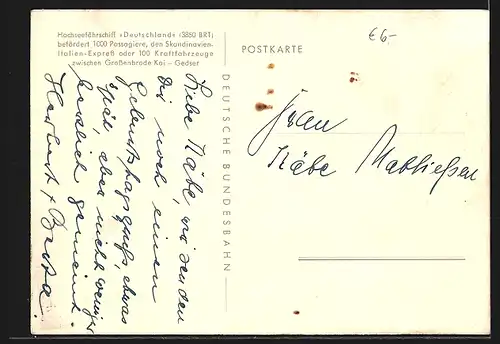 Hochseefährschiff »Deutschland« (3850 BRT)
befördert 1000 Passagiere, den Skandinavien-
Italien-Expreß oder 100 Kraftfahrzeuge
zwischen Großenbrode Kai – Gedser
€6-
POSTKARTE
DEUTSCHE BUNDESBAHN
Liebe Käbe, wir senden
Dir noch einen
Geburtstagsgruß, etwas
spät, aber nicht weniger
herzlich gemeint.
Herbert + Berta.
Frau
Käbe Mathießen